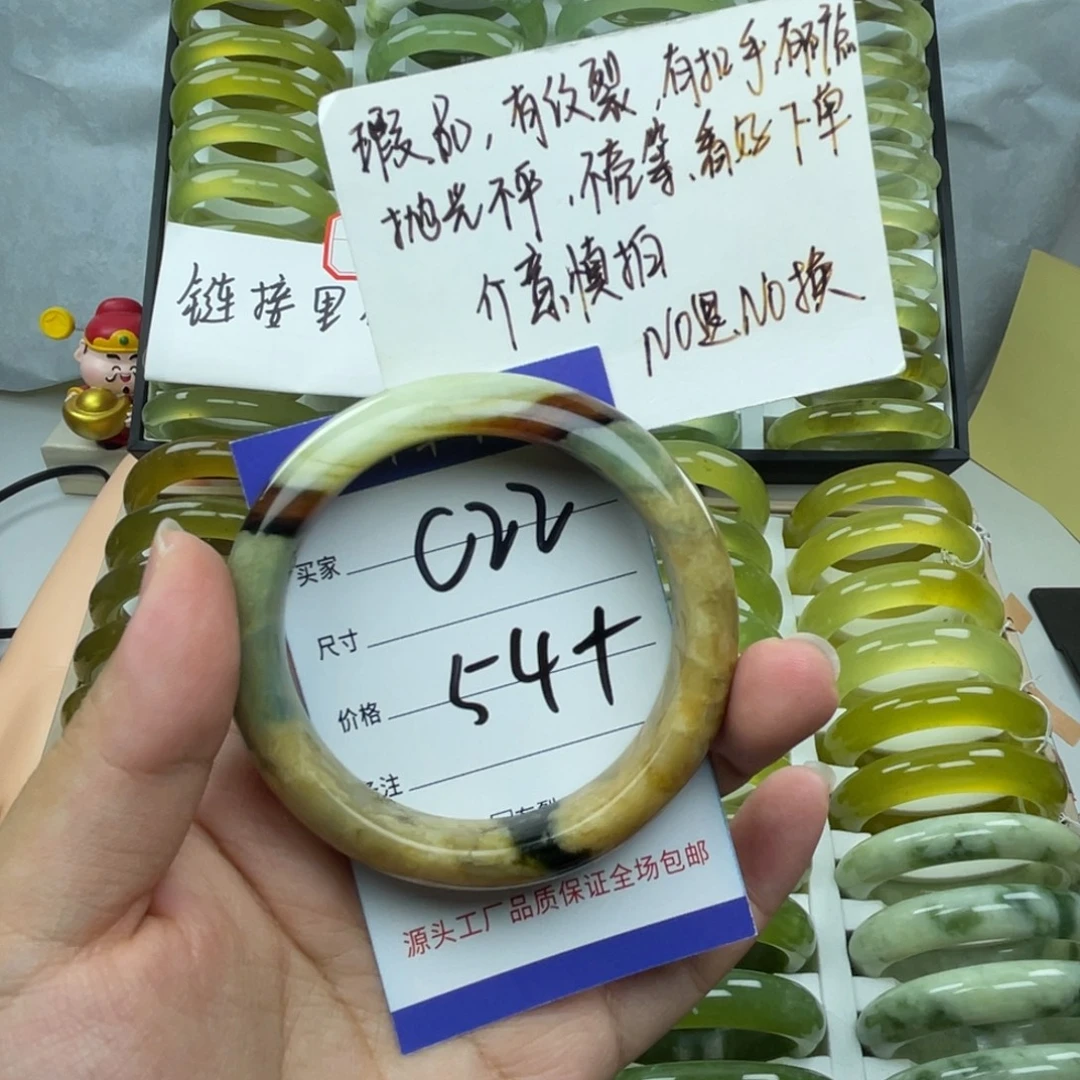 瑕品,有纹裂,有扣手,有脏点
抛光不平,不亮等、看好下单
介意慎拍
NO退、NO换
链接里
买家 C22
尺寸
价格 54+
注
源头工厂品质保证全场包邮